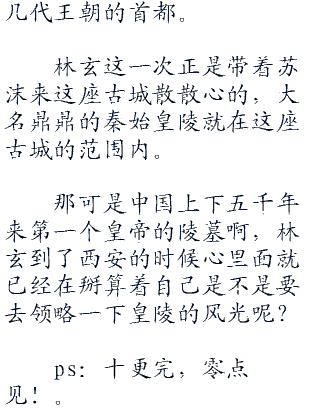 几代王朝的首都。
林玄这一次正是带着苏
沫来这座古城散散心的，大
名鼎鼎的秦始皇陵就在这座
古城的范围内。
那可是中国上下五千年
来第一个皇帝的陵墓啊，林
玄到了西安的时候心里面就
已经在掰算着自己是不是要
去领略一下皇陵的风光呢？
ps：十更完，零点
见！。